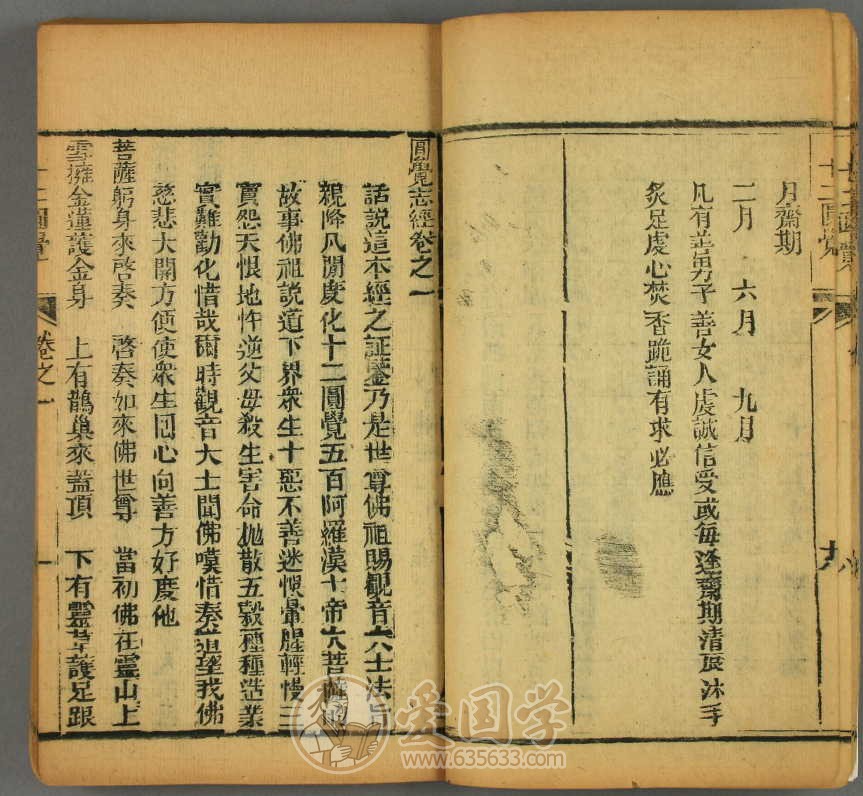 十二圓覺
月齋期
二月 六月 九月
凡有善男子善女人虔誠信受或每逢齋期清晨沐手
炙足虔心焚香跪誦有求必應
十八
圓覺志經卷之一
話說這本經之証鑒乃是世尊佛祖賜觀音大士法旨
親降凡間度化十二圓覺五百阿羅漢十帝大菩薩的
故事佛祖說道下界眾生十惡不善迷
輕慢三
寶怨天恨地忤逆父母殺生害命拋散五穀種種造業
實難勸化惜哉爾時觀音大士聞佛嘆惜奏道望我佛
慈悲大開方便使眾生回心向善方好度他
菩薩躬身來啓奏 啓奏如來佛世尊 當初佛在靈山上
雪擁金蓮護金身 上有鵲巢來蓋頂 下有靈芽護足跟
十二圓覺 卷之一 一
爱国学
www.635633.com